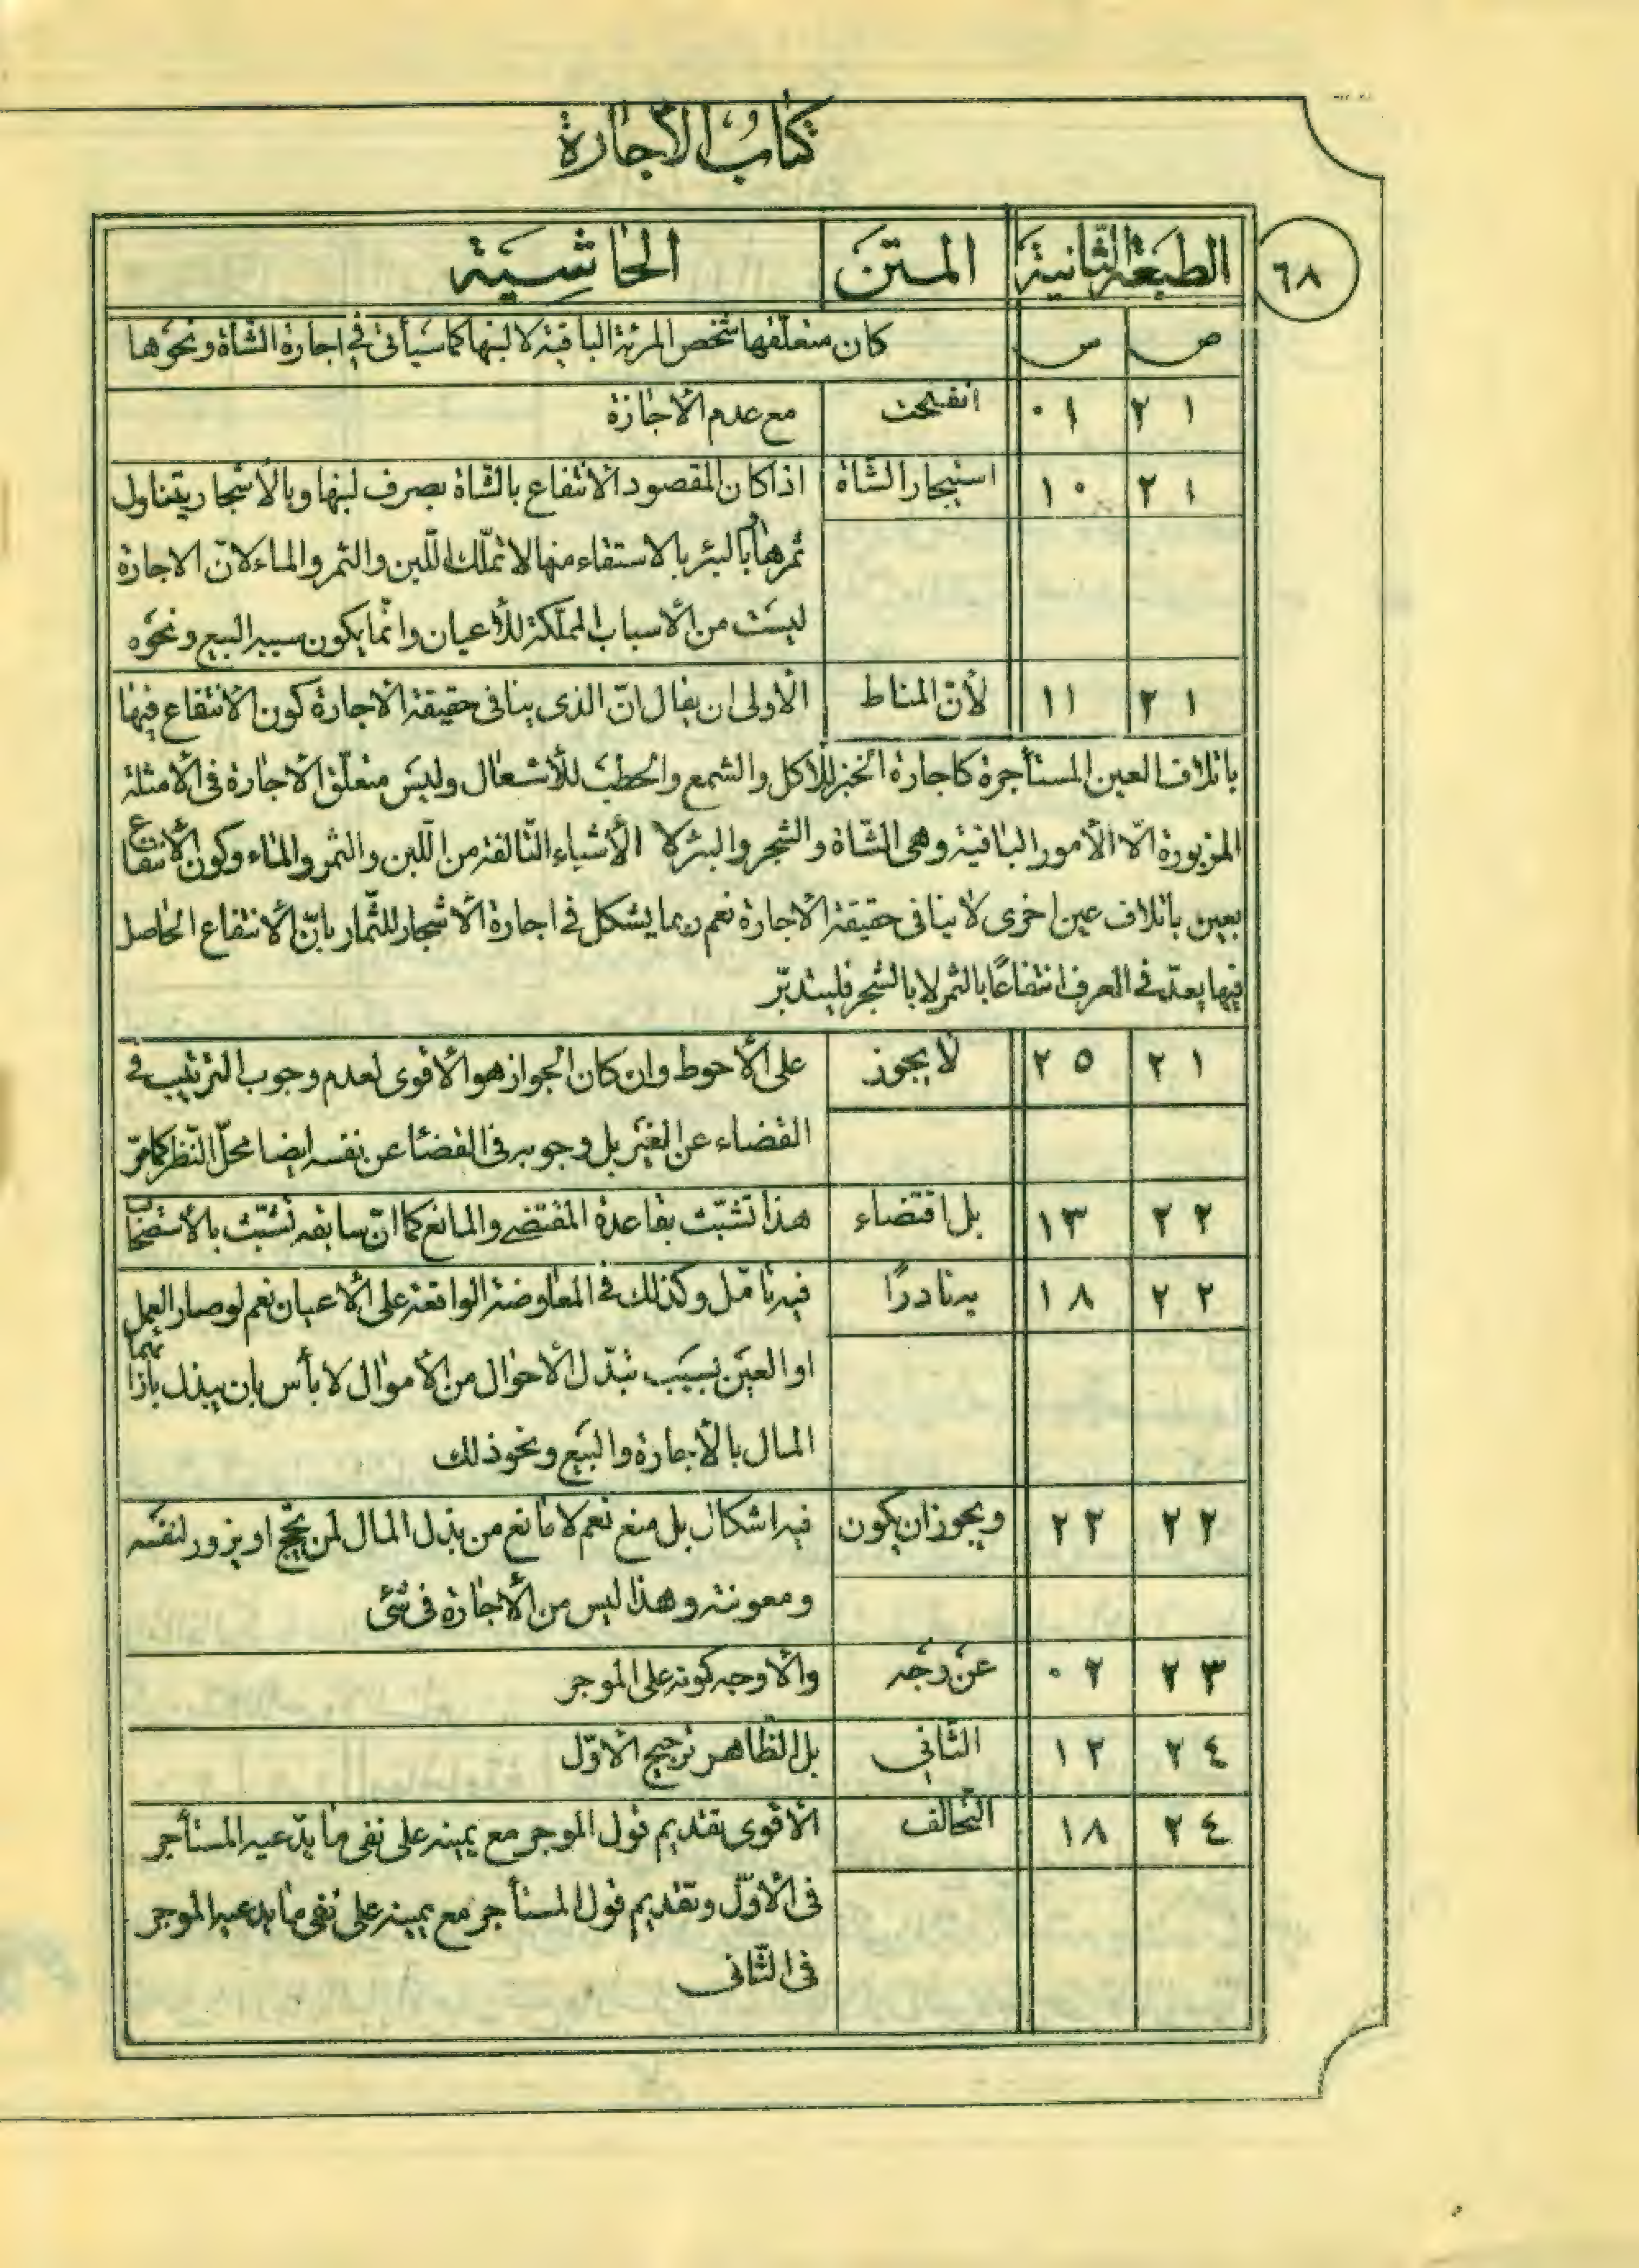 كتاب الأجارة
٦٨
الطبعة الثانية المتن الحاشية
ص س كان متعلقها شخص المرئة الباقية لا لبنها كما سيأتى فى اجارة الشاة ونحوها
٢١ ٠١ انفسخت مع عدم الأجازة
٢١ ١٠ استيجار الشاة اذا كان المقصود الانتفاع بالشاة بصرف لبنها وبالأشجار بتناول
ثمرها وبالبئر بالاستقاء منها لا تملّك اللّبن والثمر والماء لانّ الاجارة
ليست من الأسباب المملّكة للأعيان وانّما يكون سبيه البيع ونحوه
٢١ ١١ لأنّ المناط الأولى ان يقال انّ الذى ينافى حقيقة الاجارة كون الانتفاع فيها
باتلاف العين المستأجرة كاجارة الخبز للأكل والشمع والحطب للأشعال وليس متعلّق الاجارة فى الأمثلة
المزبورة الّا الأمور الباقية وهى الشاة والشجر والبئر لا الأشياء التالفة من اللّبن والثمر والماء وكون الانتفاع
بعين باتلاف عين اخرى لا ينافى حقيقة الاجارة نعم ربما يشكل فى اجارة الاشجار للثّمار بانّ الانتفاع الحاصل
فيها يعدّ فى العرف انتفاعًا بالثمر لا بالشجر فليتدبّر
٢١ ٢٥ لا يجوز على الأحوط وان كان الجواز هو الأقوى لعدم وجوب الترتيب فى
القضاء عن الغير بل وجوبه فى القضاء عن نفسه ايضا محلّ النّظر كما مرّ
٢٢ ١٣ بل اقتضاء هذا تشبّث بقاعدة المقتضى والمانع كما انّ سابقه تشبّث بالأستصحاب
٢٢ ١٨ به نادرًا فيه تأمّل وكذلك فى المعاوضة الواقعة على الأعيان نعم لو صار العمل
او العين بسبب تبدّل الأحوال من الأموال لا بأس بان يبذل بازائهما
المال بالأجارة والبيع ونحو ذلك
٢٢ ٢٢ ويجوز ان يكون فيه اشكال بل منع نعم لا مانع من بذل المال لمن يحجّ او يزور لنفسه
ومعونته وهذا ليس من الأجارة فى شئى
٢٣ ٠٢ عن وجه والأوجه كونه على الموجر
٢٤ ١٢ الثّانى بل الظّاهر ترجيح الاوّل
٢٤ ١٨ التّحالف الأقوى تقديم قول الموجر مع يمينه على نفى ما يدّعيه المستأجر
فى الأوّل وتقديم قول المستأجر مع يمينه على نفى ما يدعيه الموجر
فى الثّانى